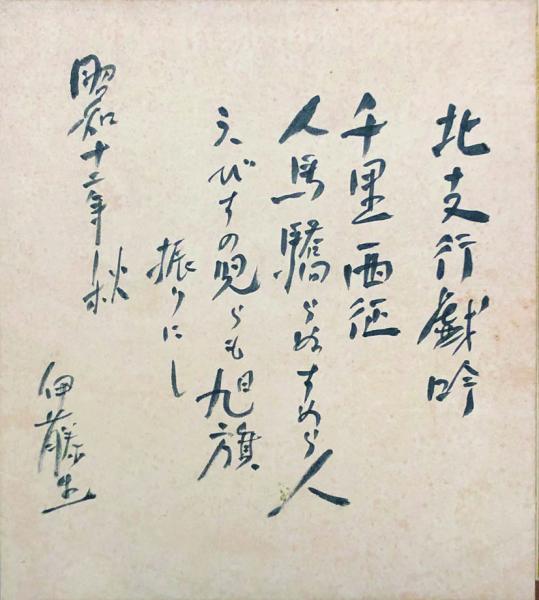 北支行戯吟
千里西征
人馬驕らぬすめら人
えびすの児らも旭旗
振りにし
昭和十二年秋
伊藤生